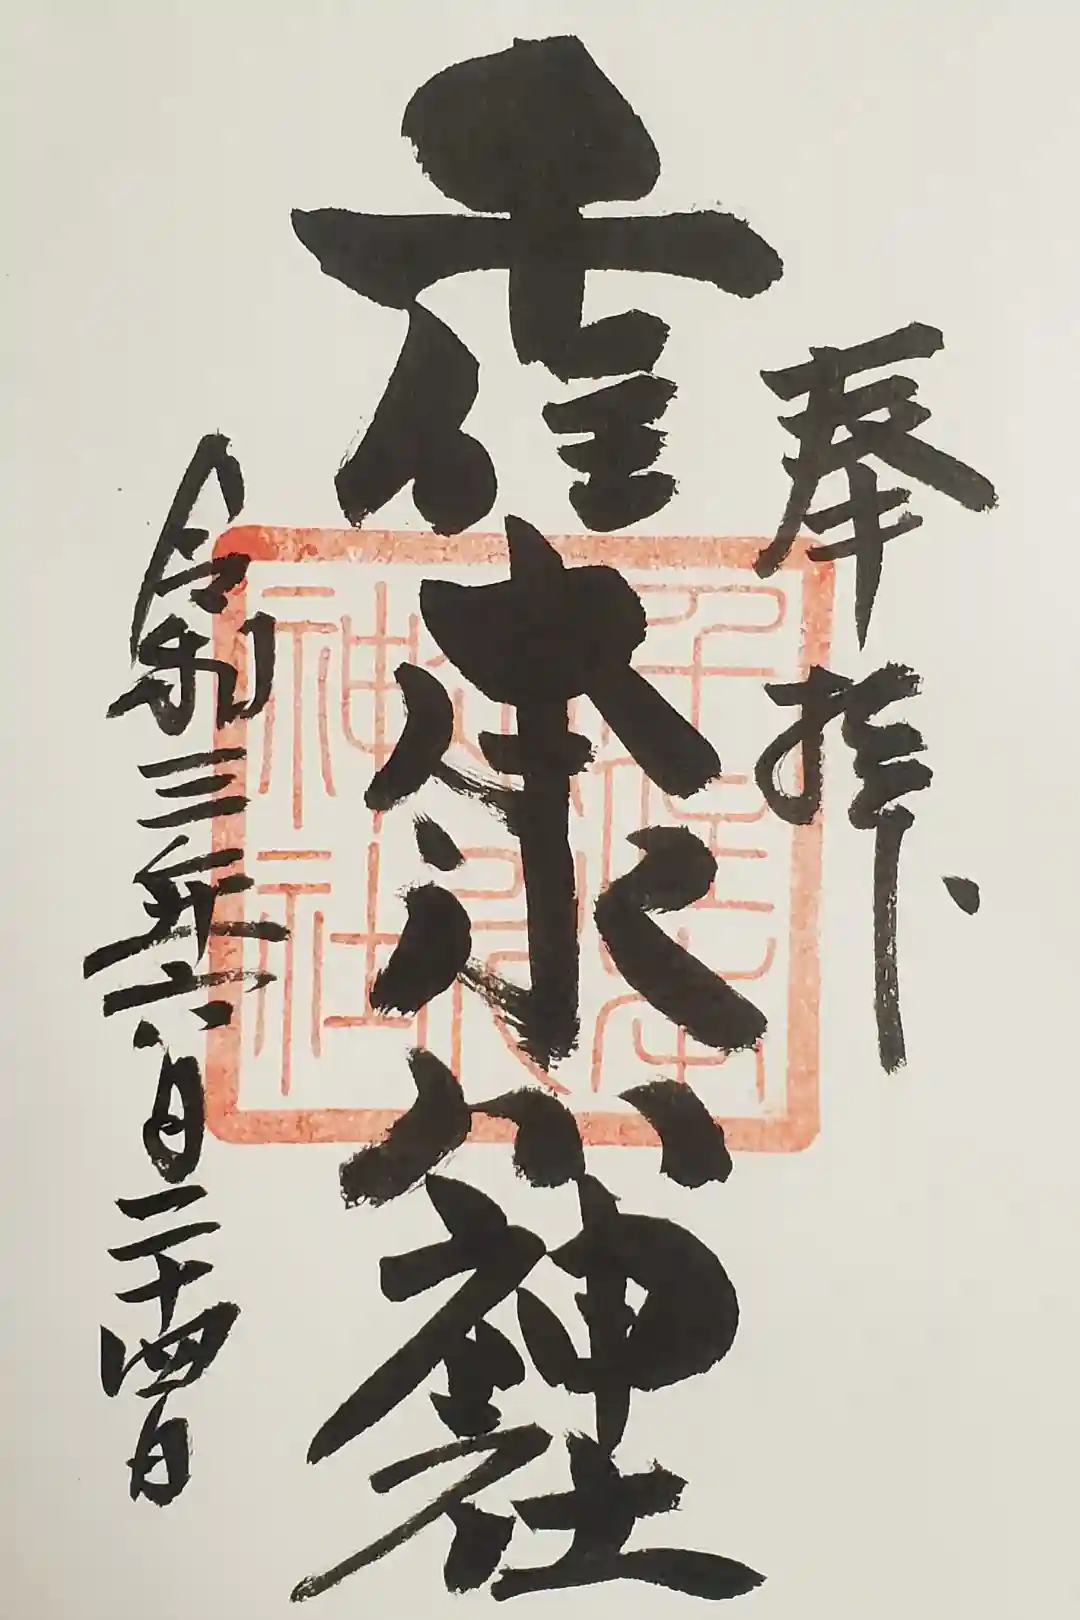 奉拝、
千住本氷川神社
令和三年六月二十四日
千住本
氷川
神社